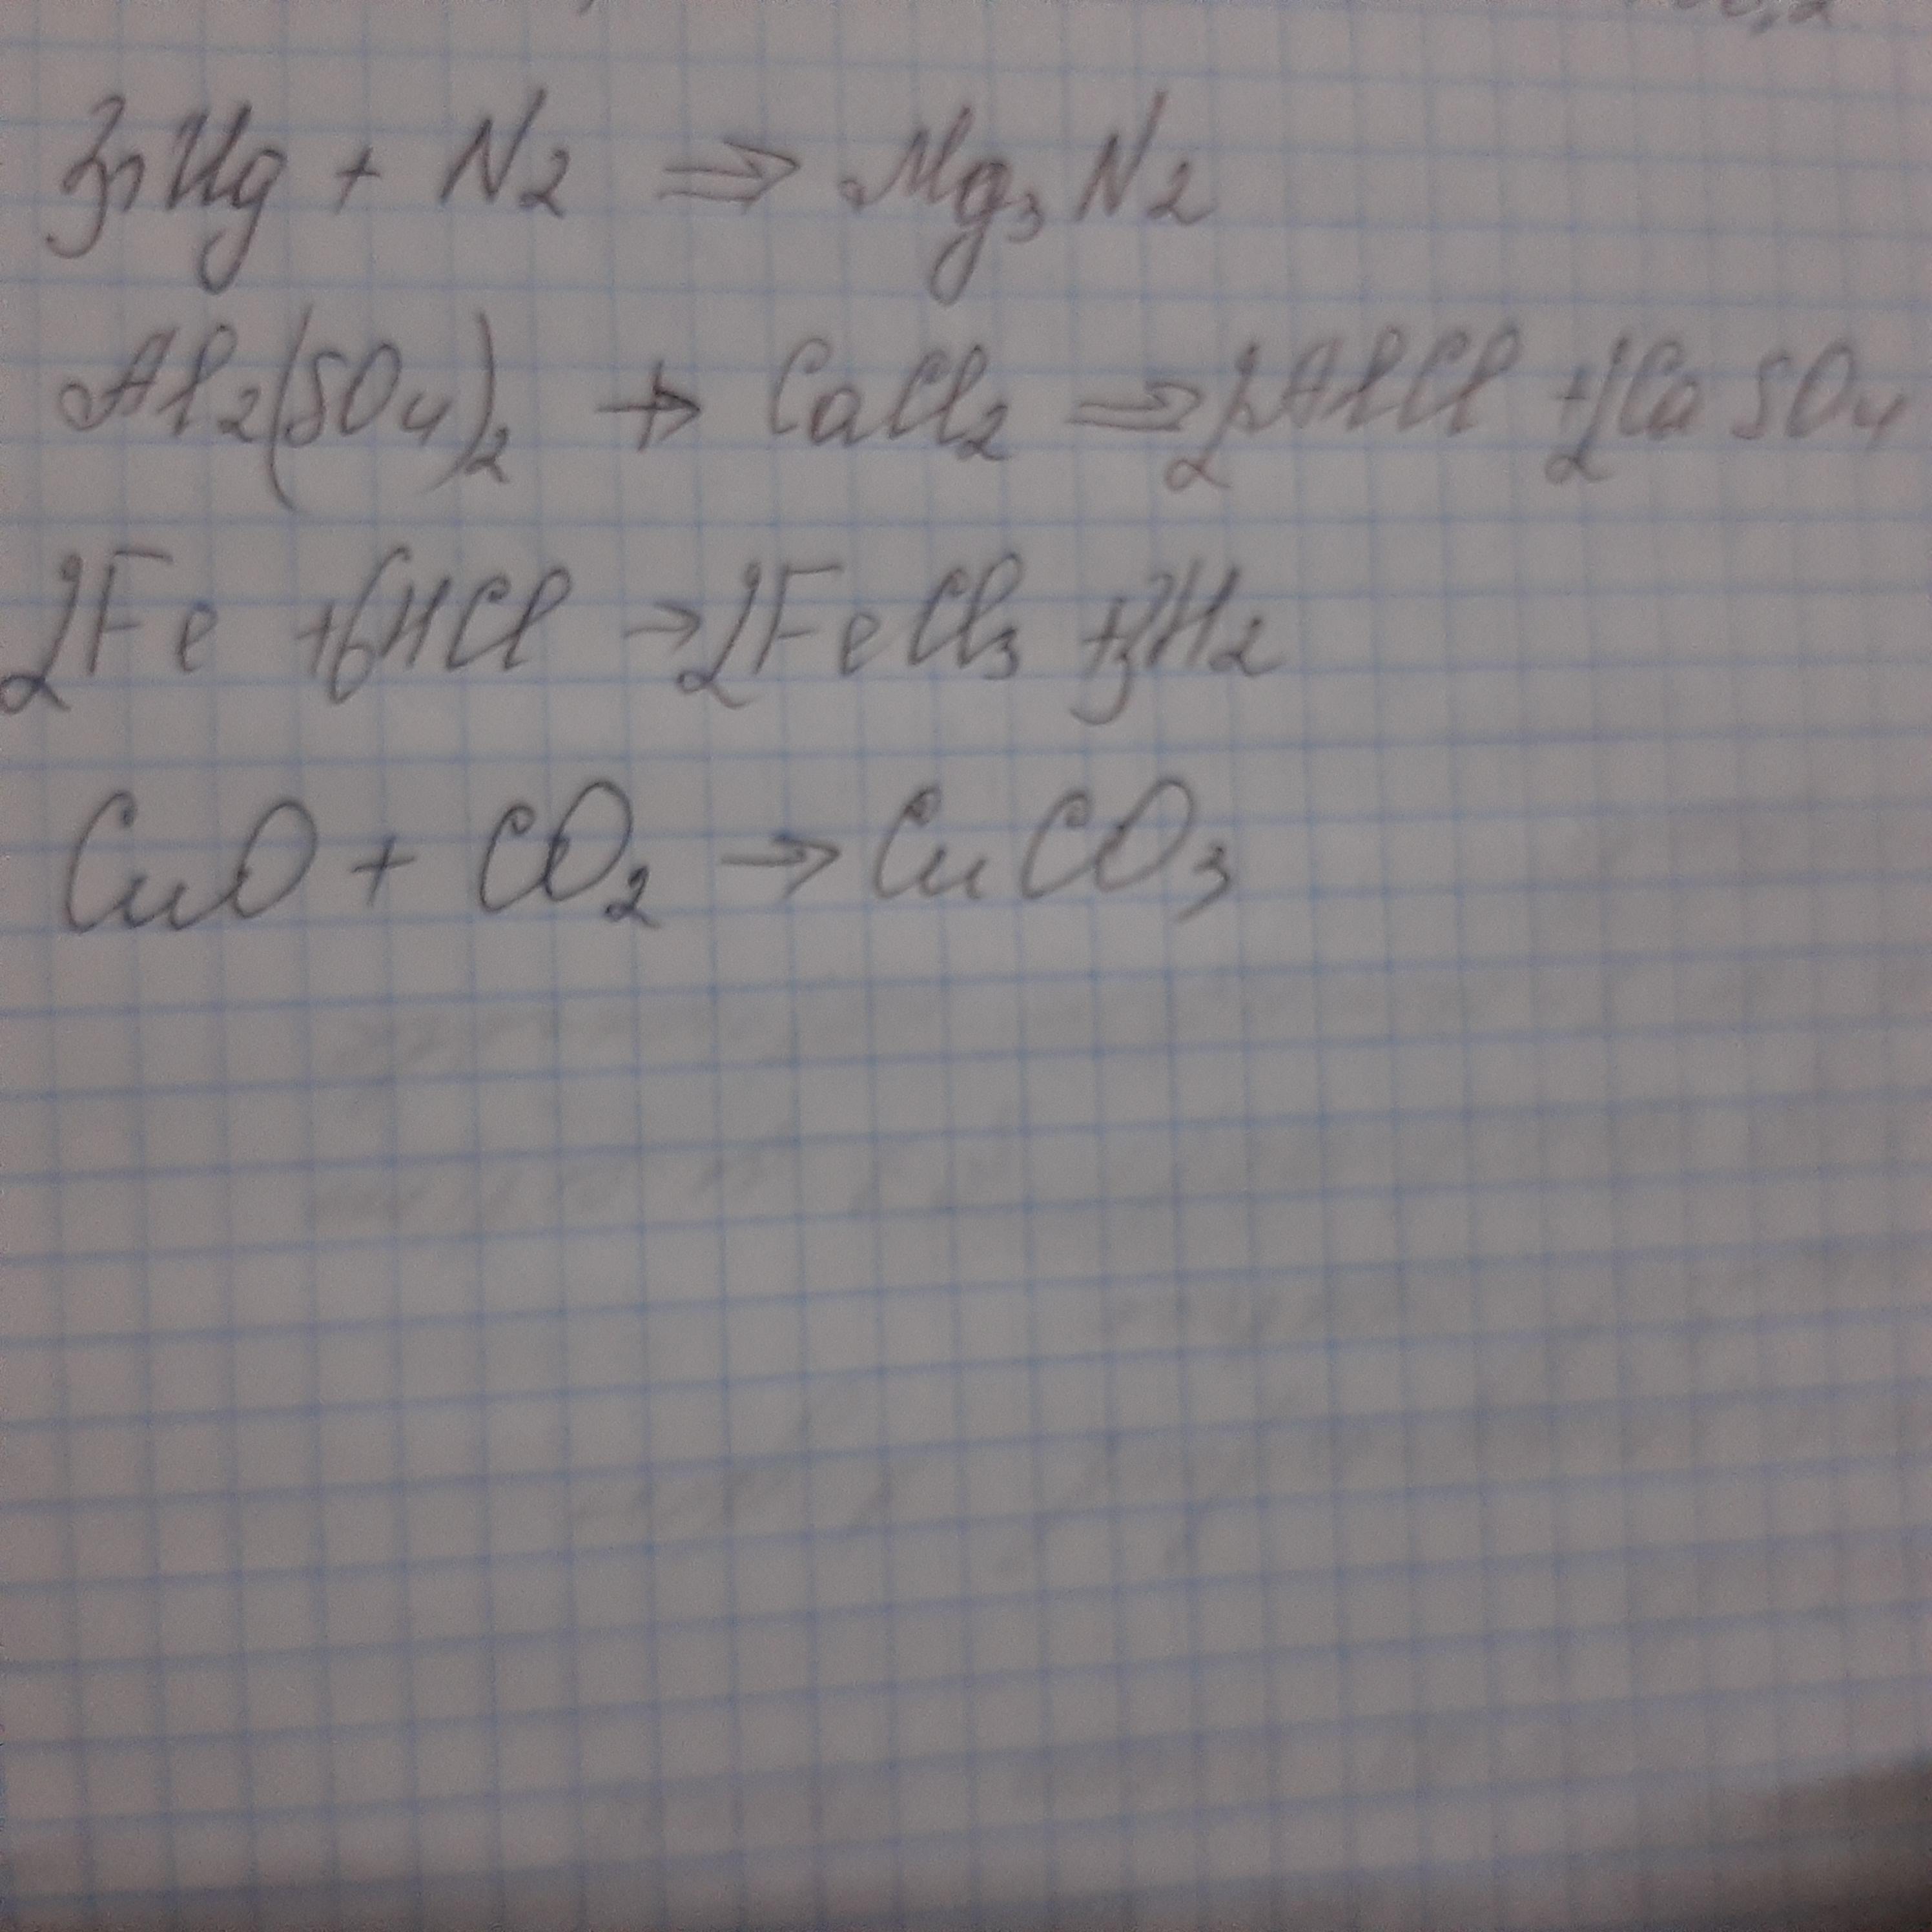 3Mg + N2 ⇒ Mg3N2
Al2(SO4)2 + CaCl2 ⇒ 2AlCl + 2CaSO4
2Fe + 6HCl → 2FeCl3 + 3H2
CuO + CO2 → CuCO3